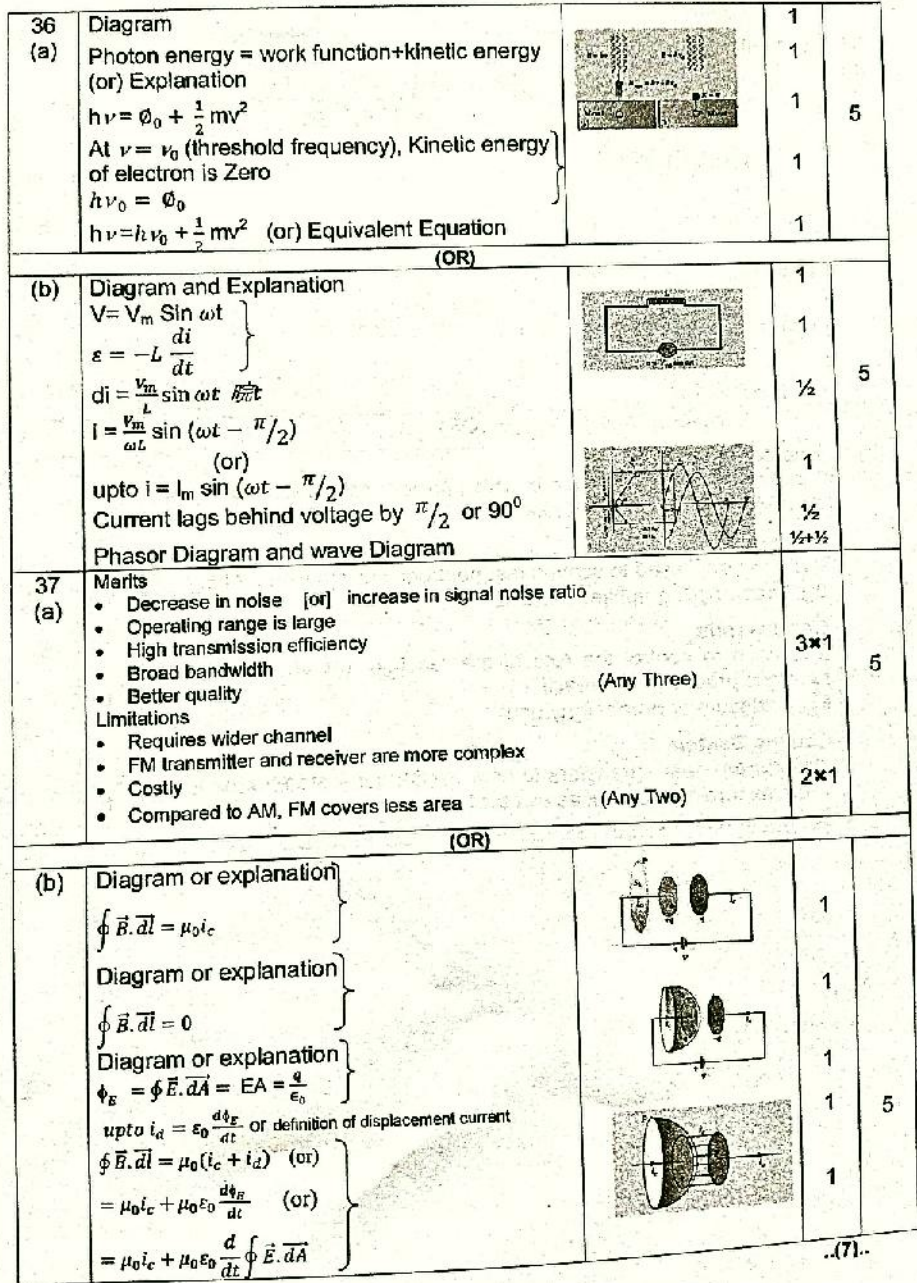 36 Diagram 1
(a) Photon energy = work function+kinetic energy 1
(or) Explanation
hν = ∅₀ + ½ mv² 1 5
At ν = ν₀ (threshold frequency), Kinetic energy
of electron is Zero 1
hν₀ = ∅₀
hν=hν₀ + ½ mv² (or) Equivalent Equation 1
(OR)
(b) Diagram and Explanation 1
V= Vₘ Sin ωt
ε = −L di/dt 1
di = Vₘ/L sin ωt ½ 5
i = Vₘ/ωL sin (ωt − π/2)
(or) 1
upto i = Iₘ sin (ωt − π/2)
Current lags behind voltage by π/2 or 90⁰ ½
Phasor Diagram and wave Diagram ½+½
37 Merits
(a) • Decrease in noise [or] increase in signal noise ratio
• Operating range is large
• High transmission efficiency 3×1
• Broad bandwidth 5
• Better quality (Any Three)
Limitations
• Requires wider channel
• FM transmitter and receiver are more complex
• Costly 2×1
• Compared to AM, FM covers less area (Any Two)
(OR)
(b) Diagram or explanation
∮ B⃗.dl⃗ = μ₀i_c 1
Diagram or explanation 1
∮ B⃗.dl⃗ = 0
Diagram or explanation 1
ϕ_E = ∮ E⃗.dA⃗ = EA = q/ϵ₀
upto i_d = ε₀ dϕ_E/dt or definition of displacement current 1 5
∮ B⃗.dl⃗ = μ₀(i_c + i_d) (or)
= μ₀i_c + μ₀ε₀ dϕ_E/dt (or) 1
= μ₀i_c + μ₀ε₀ d/dt ∮ E⃗.dA⃗
..(7)..